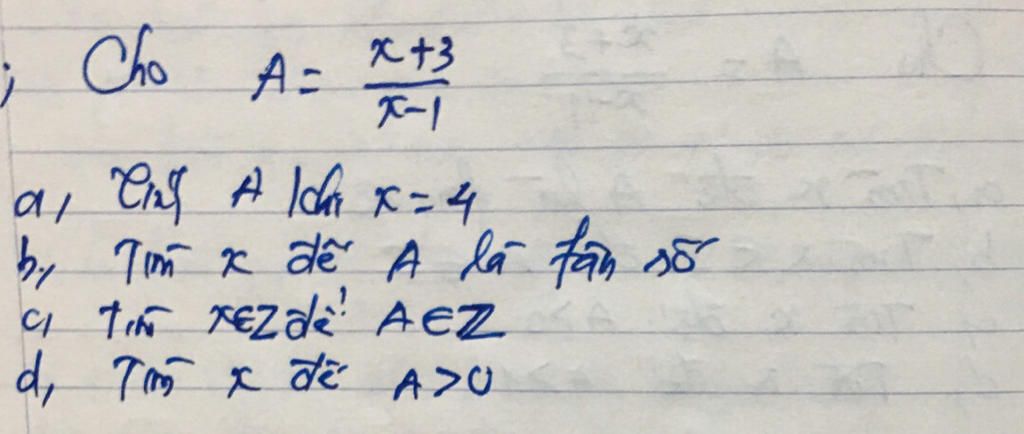 ; Cho A = \frac{x+3}{x-1}
a, Tính A khi x = 4
b, Tìm x để A là phân số
c, Tìm x∈Z để A∈Z
d, Tìm x để A>0